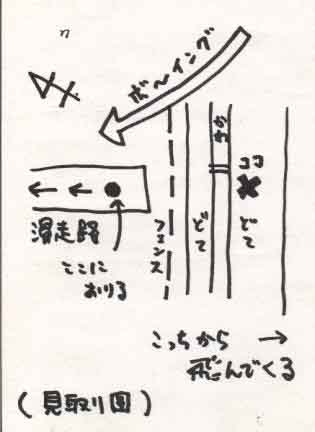 ボーイング
かわ
ココ
滑走路
ここに
おりる
フェンス
どて
どて
こっちから
飛んでくる
(見取り図)